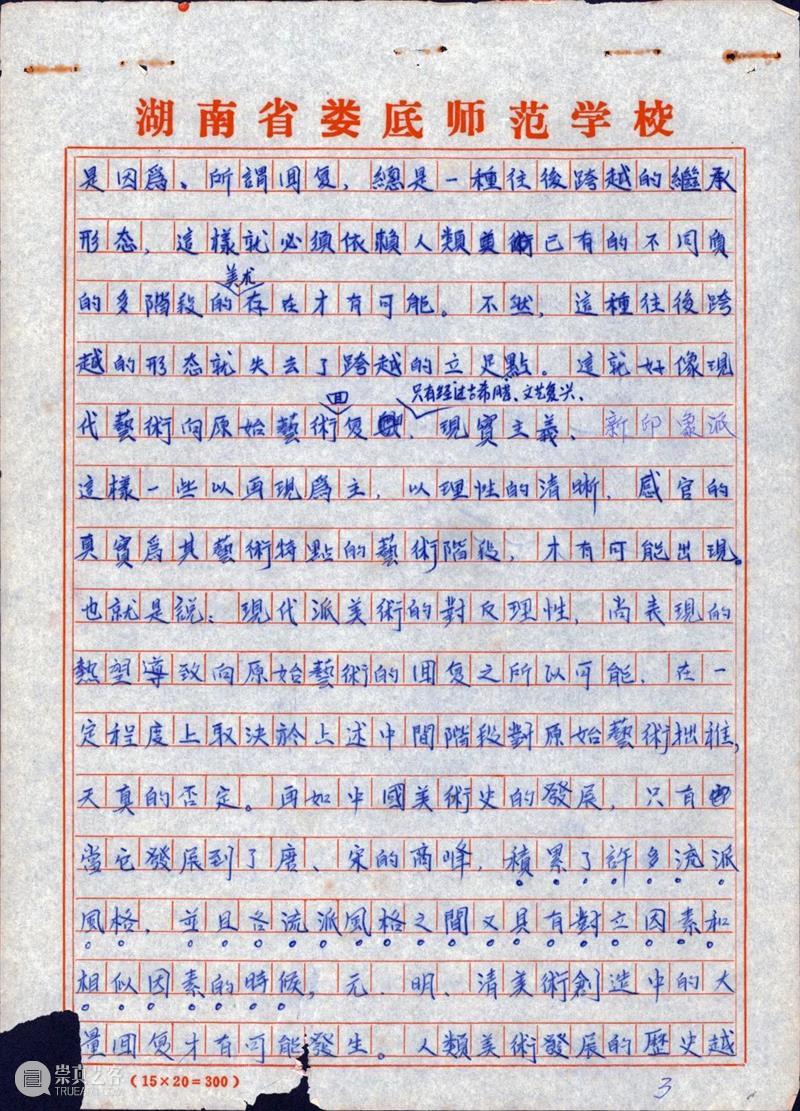 湖南省娄底师范学校
是因爲、所謂囬复，總是一種往後跨越的繼承
形态，這樣就必須依賴人類美術已有的不同質
美术
的多階段的存在才有可能。不然，這種往後跨
越的形态就失去了跨越的立足點。這就好像現
回 只有经过古希腊、文艺复兴、
代藝術向原始藝術復，現實主義、新印象派
這樣一些以再現爲主，以理性的清晰，感官的
真實爲其藝術特點的藝術階段，才有可能出現。
也就是説：現代派美術的對反理性，尚表現的
熱望導致向原始藝術的囬复之所以可能，在一
定程度上取決於上述中間階段對原始藝術拙稚，
天真的否定。再如中國美術史的發展，只有
當它發展到了唐、宋的高峰，積累了許多流派
風格，並且各流派風格之間又具有對立因素和
相似因素的時候，元、明、清美術創造中的大
量囬复才有可能發生。人類美術發展的歷史越
(15×20=300)
3
崇真艺客
TRUEART